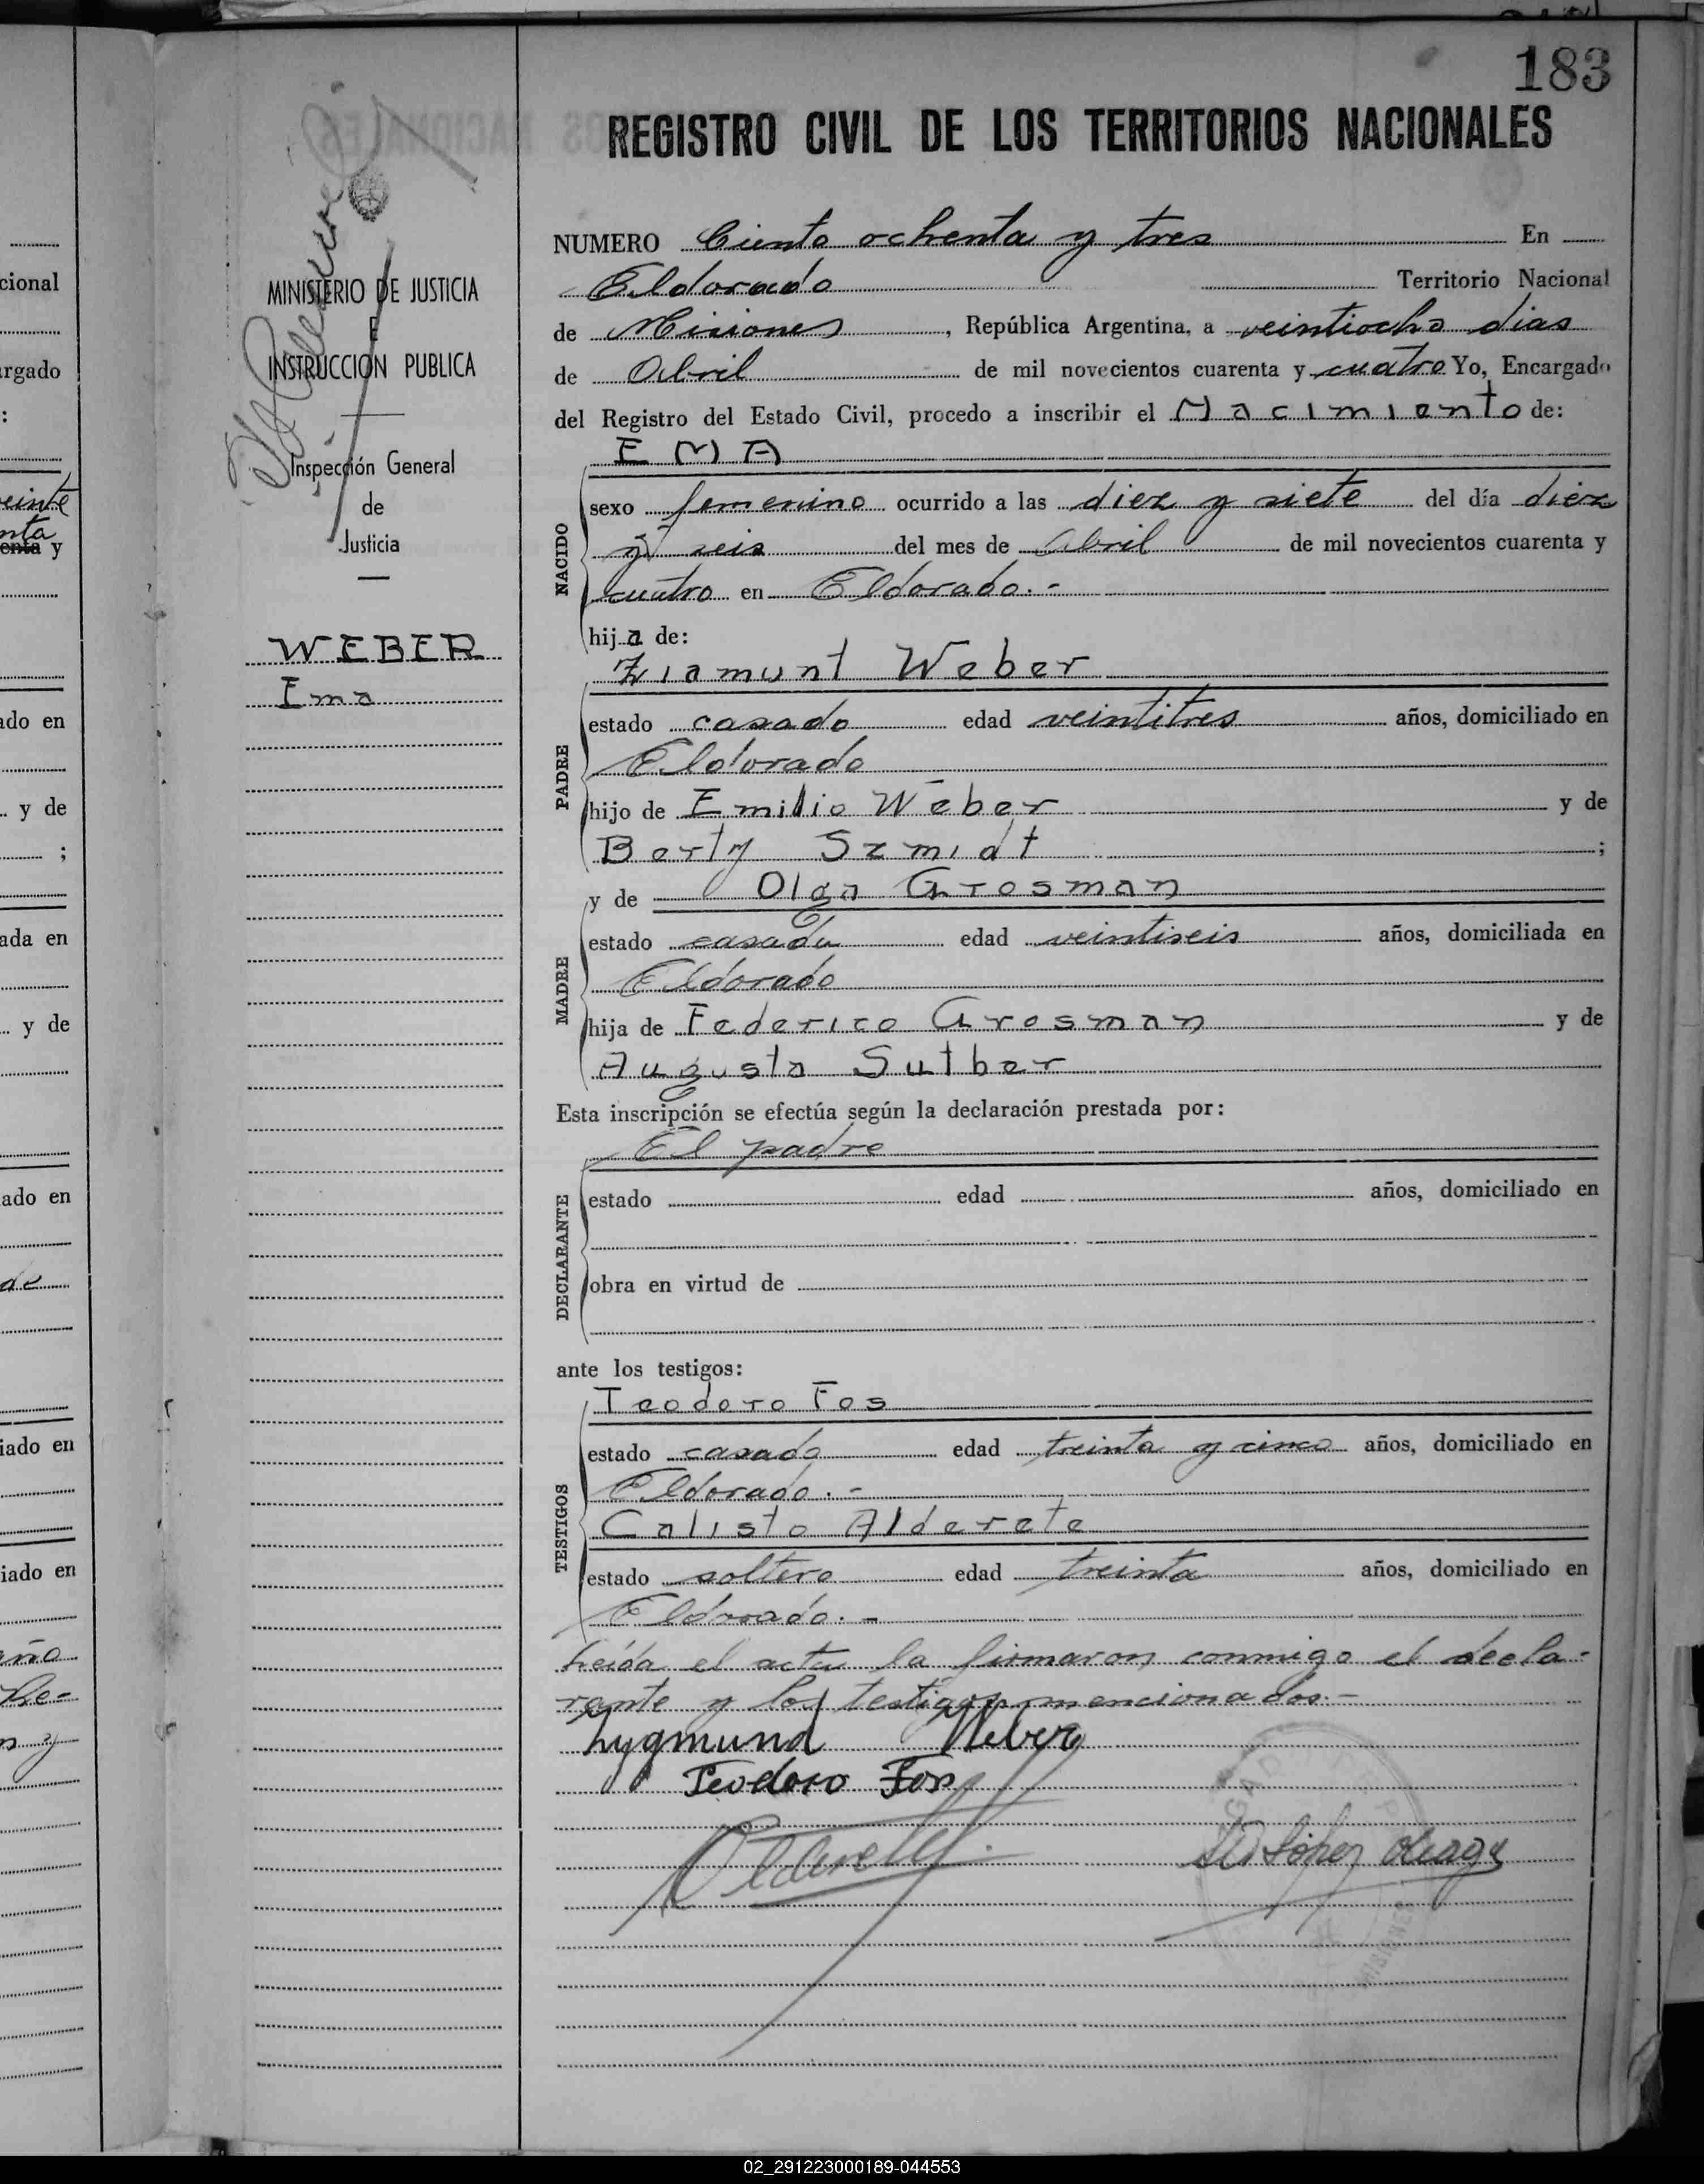 183
REGISTRO CIVIL DE LOS TERRITORIOS NACIONALES
NUMERO Ciento ochenta y tres En
Eldorado Territorio Nacional
de Misiones, República Argentina, a veintiocho dias
de Abril de mil novecientos cuarenta y cuatro Yo, Encargado
del Registro del Estado Civil, procedo a inscribir el Nacimiento de:
EMA
NACIDO
sexo femenino ocurrido a las diez y siete del día diez
y seis del mes de Abril de mil novecientos cuarenta y
cuatro en Eldorado.-
hija de:
Ziamunt Weber
PADRE
estado casado edad veintitres años, domiciliado en
Eldorado
hijo de Emilio Weber y de
Berty Szmidt ;
y de Olga Grosman
MADRE
estado casada edad veintiseis años, domiciliada en
Eldorado
hija de Federico Grosman y de
Augusta Sutber
Esta inscripción se efectúa según la declaración prestada por:
El padre
DECLARANTE
estado edad años, domiciliado en
obra en virtud de
ante los testigos:
Teodoro Fos
TESTIGOS
estado casado edad treinta y cinco años, domiciliado en
Eldorado.-
Calisto Alderete
estado soltero edad treinta años, domiciliado en
Eldorado.-
Leída el acta la firmaron conmigo el decla-
rante y los testigos mencionados.-
Zygmund Weber
Teodoro Fos
López
MINISTERIO DE JUSTICIA
E
INSTRUCCION PUBLICA
Inspección General
de
Justicia
WEBER
Ema
cional
argado
:
einte
enta y
ado en
y de
;
ada en
y de
ado en
de
iado en
iado en
02_291223000189-044553